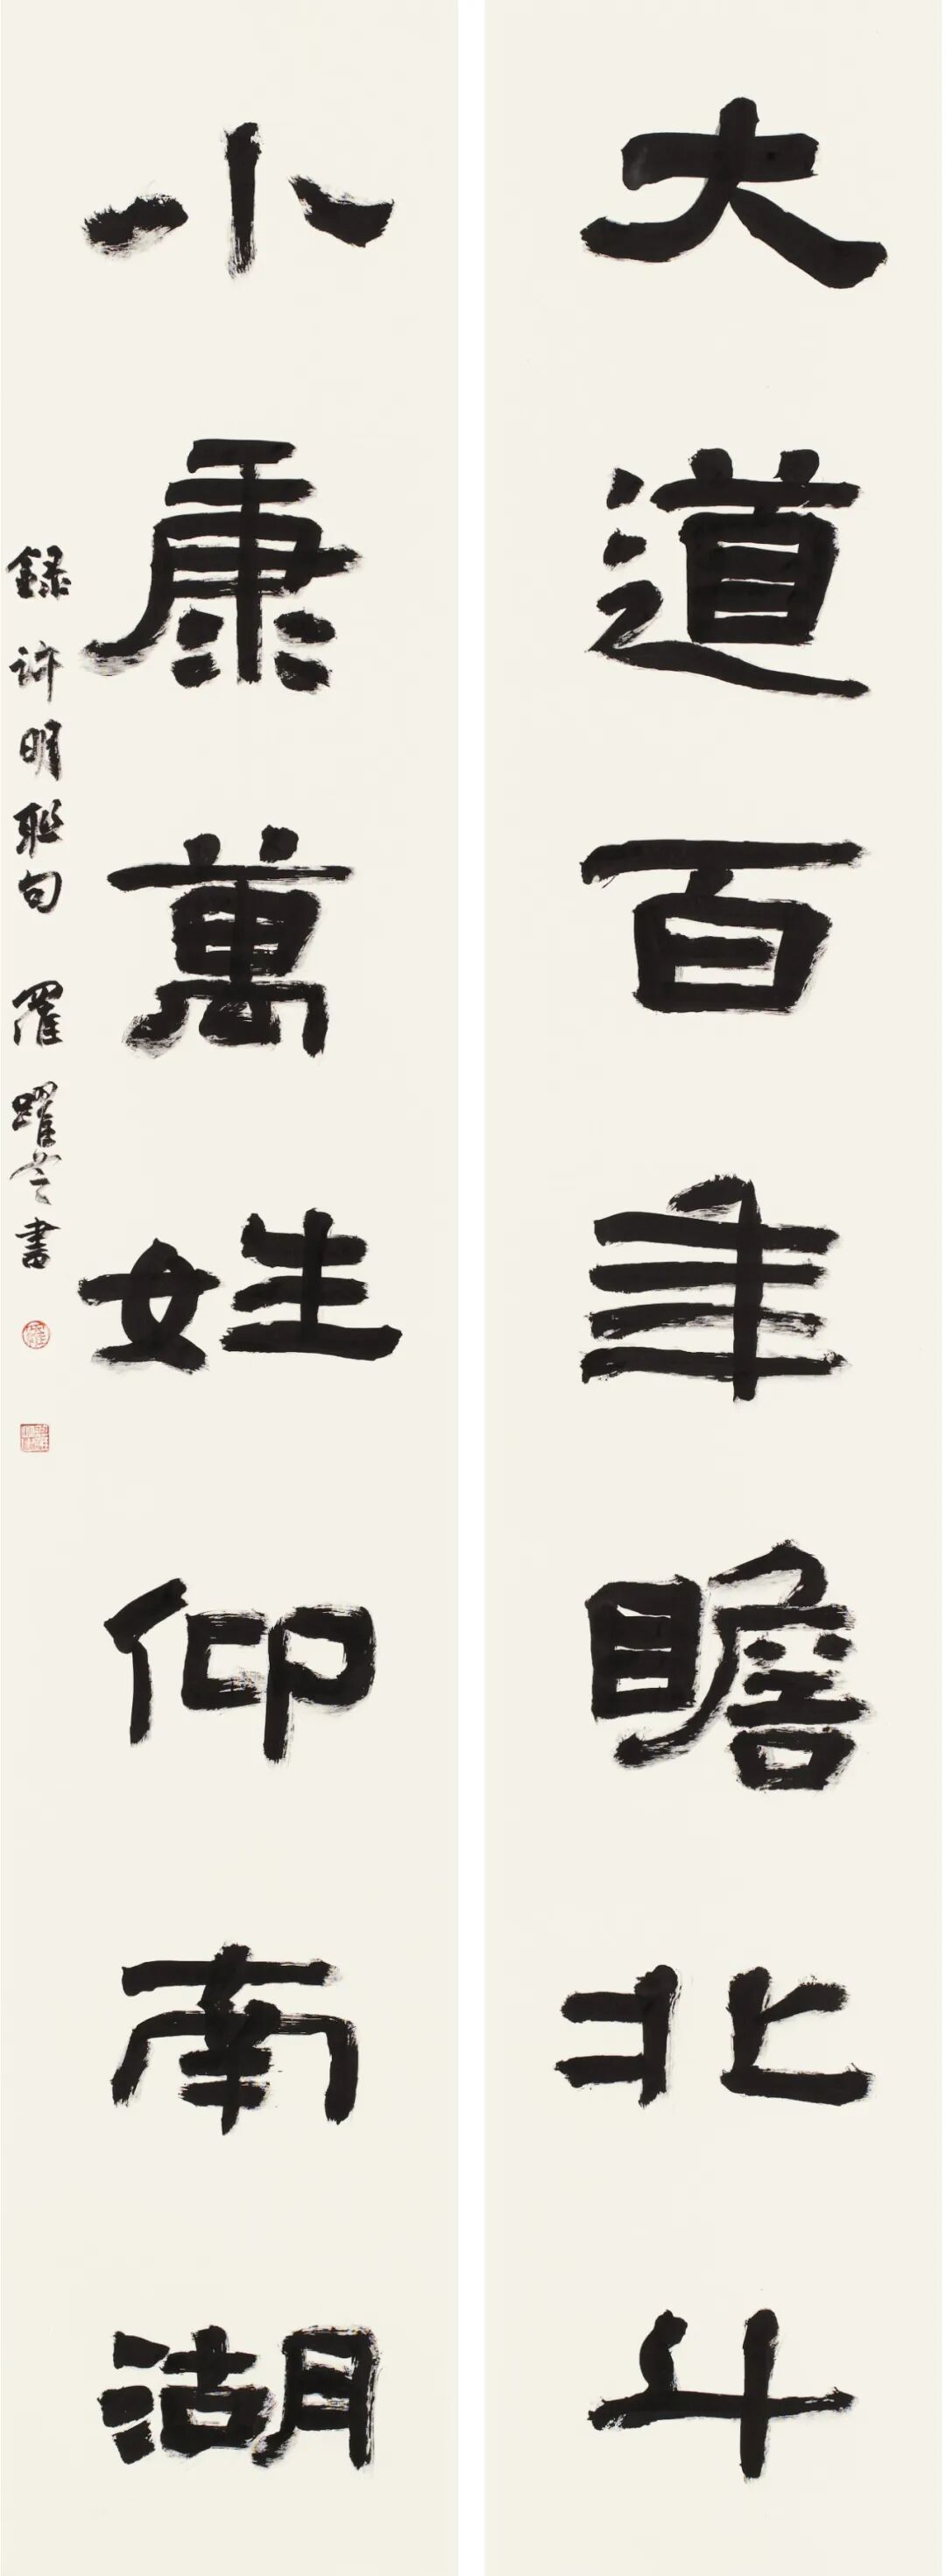 大道百年瞻北斗
小康萬姓仰南湖
録許明聯句 羅躍 書